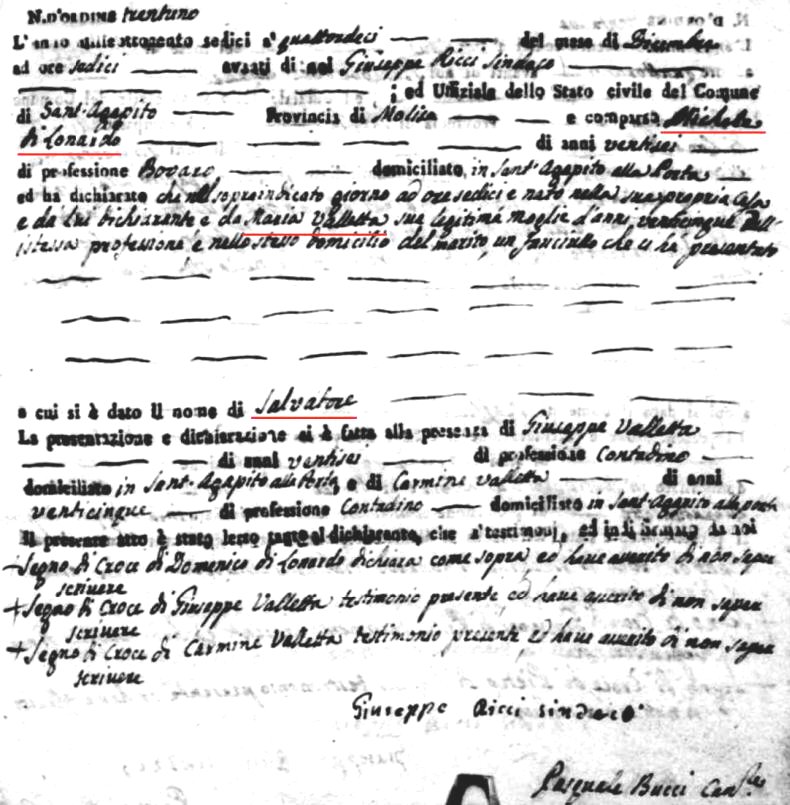 N. D'ORDINE trentuno
L'anno mille ottocento sedici a' quattordici del mese di Dicembre
ad ore sedici avanti di noi Giuseppe Ricci Sindaco
; ed Uffiziale dello Stato civile del Comune
di Sant'Agapito Provincia di Molise e comparso Michele
di Lonardo di anni ventisei
di professione Bovaro domiciliato in Sant'Agapito alla Porta
ed ha dichiarato che nel sopraindicato giorno ad ore sedici e nato nella sua propria Casa
e da lui dichiarante e da Maria Valletta sua legitima moglie d'anni venticinque dell'
istessa professione e nello stesso domicilio del marito, un fanciullo che ci ha presentato
e cui si è dato il nome di Salvatore
La presentazione e dichiarazione si è fatta alla presenza di Giuseppe Valletta
di anni ventisei di professione Contadino
domiciliato in Sant'Agapito alla Porta, e di Carmine Valletta di anni
venticinque di professione Contadino domiciliato in Sant'Agapito alla porta
Il presente atto è stato letto tanto al dichiarante, che a' testimonj, ed indi firmato da noi
+ Segno di Croce di Domenico di Lonardo dichiara come sopra ed have asserito di non saper
scrivere
+ Segno di Croce di Giuseppe Valletta testimonio presente ed have asserito di non saper
scrivere
+ Segno di Croce di Carmine Valletta testimonio presente ed have asserito di non saper
scrivere
Giuseppe Ricci Sindaco
Pasquale Bucci Can.re